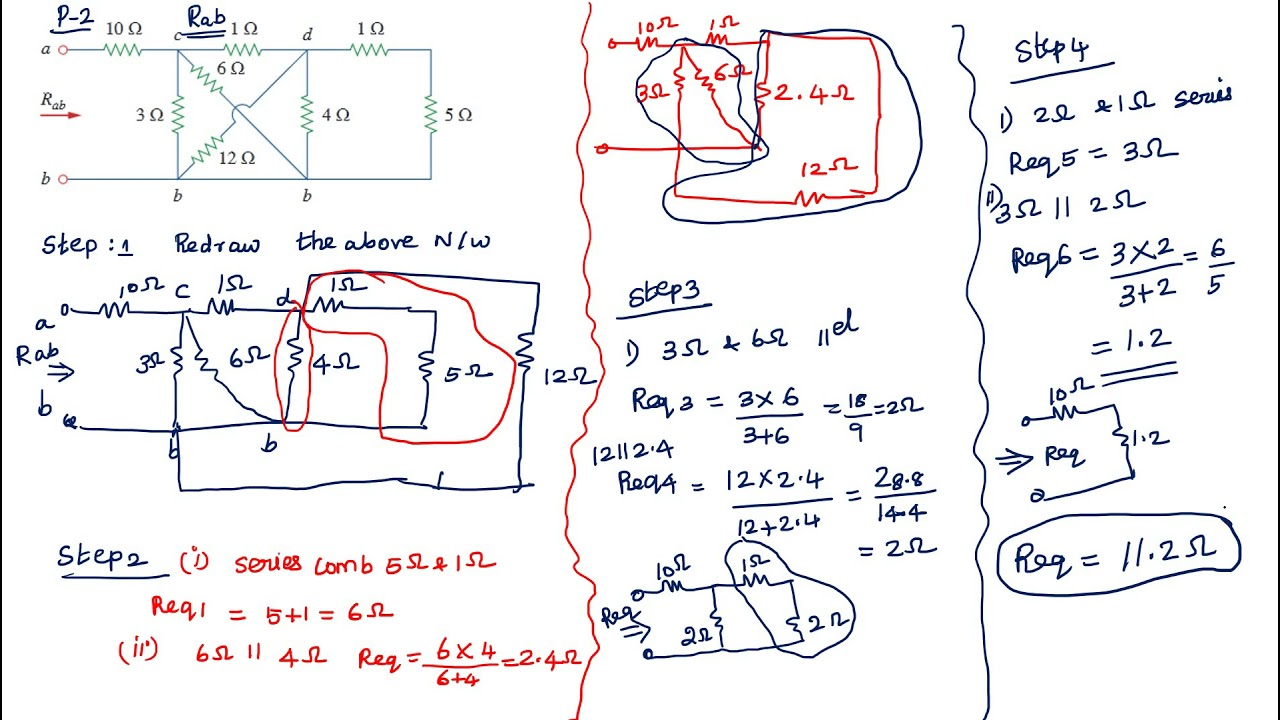 P-2
Rab
10 Ω c 1 Ω d 1 Ω
a
6 Ω
Rab
3 Ω 4 Ω 5 Ω
12 Ω
b
b b
Step :1 Redraw the above N/w
10Ω C 1Ω d 1Ω
a
Rab 3Ω 6Ω 4Ω 5Ω 12Ω
⇒
b
b b
Step2 (i) series comb 5Ω & 1Ω
Req1 = 5+1 = 6Ω
(ii) 6Ω || 4Ω Req = 6×4/6+4 = 2.4Ω
10Ω 1Ω
3Ω 6Ω 2.4Ω
12Ω
Step3
i) 3Ω & 6Ω ||el
Req3 = 3×6/3+6 = 18/9 = 2Ω
12||2.4
Req4 = 12×2.4/12+2.4 = 28.8/14.4
= 2Ω
10Ω 1Ω
Req ⇒ 2Ω 2Ω
Step4
i) 2Ω & 1Ω series
Req5 = 3Ω
ii) 3Ω || 2Ω
Req6 = 3×2/3+2 = 6/5
= 1.2
10Ω
⇒ Req 1.2
Req = 11.2Ω